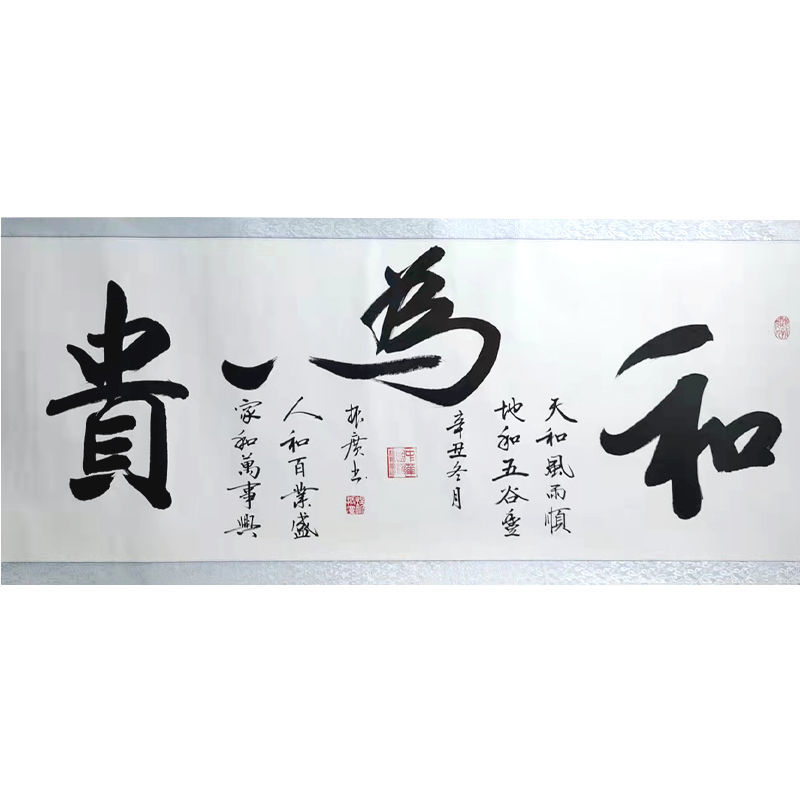 和為貴
天和風雨順
地和五谷豐
辛丑冬月
振廣书
人和百業盛
家和萬事興